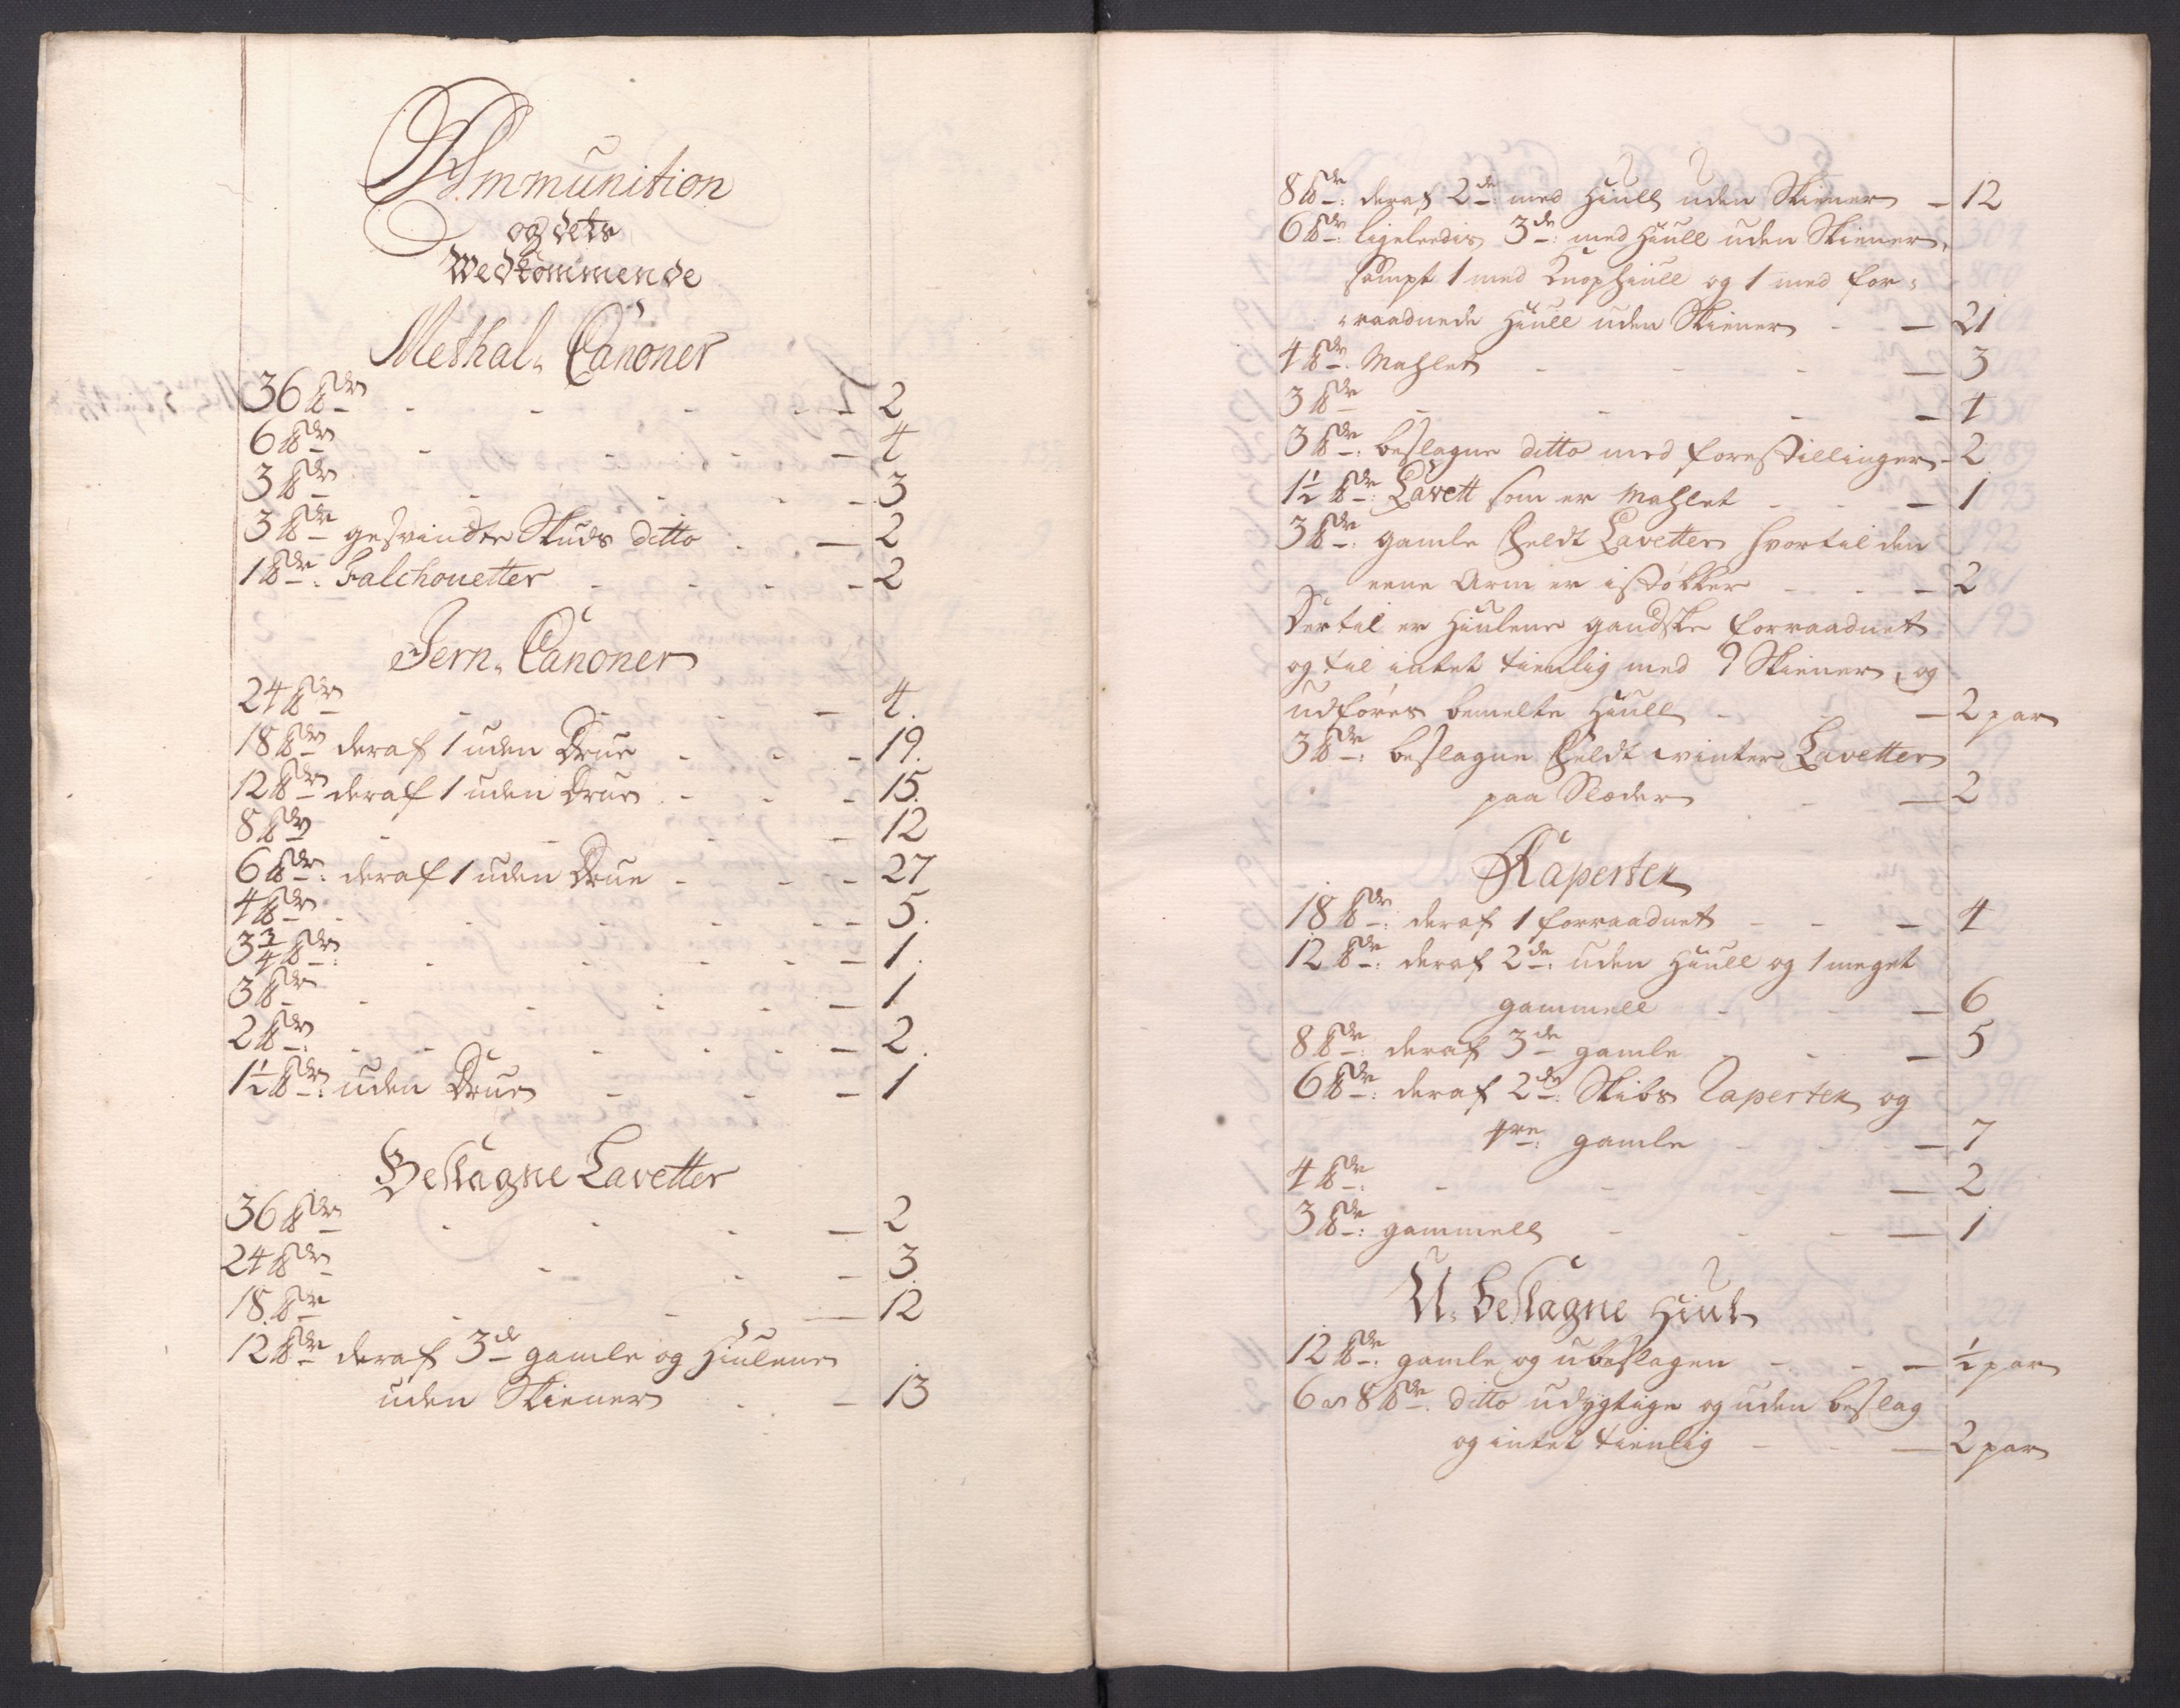 Ammunition
og dets
Wedkommende
Methal. Canoner
36 ℔dr - - - - 2
6 ℔dr - - - - 4
3 ℔dr - - - - 3
3 ℔dr gesvindte Skuds ditto - - 2
1 ℔dr: Falchouetter - - - - 2
Jern. Canoner
24 ℔dr - - - - 4.
18 ℔dr deraf 1 uden Drue - - - 19.
12 ℔dr deraf 1 uden Drue - - - 15.
8 ℔dr - - - - 12
6 ℔dr: deraf 1 uden Drue - - - 27
4 ℔dr - - - - 5.
3 3/4 ℔dr: - - - - 1.
3 ℔dr - - - - 1
2 ℔dr: - - - - 2.
1 1/2 ℔dr: uden Drue - - - 1
Beslagne Lavetter
36 ℔dr - - - - 2
24 ℔dr - - - 3.
18 ℔dr - - - 12
12 ℔dr deraf 3de gamle og Hiulene
uden Skiener - - 13
8 ℔dr: deraf 2de med Hiull uden Skiener - 12
6 ℔dr: ligeleedis 3de: med Hiull uden Skiener,
sampt 1 med Knophiull og 1 med for-
raadnede Hiull uden Skiener - - 21
4 ℔dr. Mahlet - - - 3
3 ℔dr - - - - 4
3 ℔dr: beslagne ditto med forestillinger - 2
1 1/2 ℔dr: Lavett som er Mahlet - - - 1
3 ℔dr: gamle Feldt Lavetter hvortil den
eene Arm er istøkker - - - 2
Dertil er Hiulene gandske forraadnet
og til intet tienlig med 9 Skiener, og
udføres bemelte Hiull - - 2 par
3 ℔dr: beslagne Feldt winter Lavetter
paa Slæder - - 2
Raperter
18 ℔dr: deraf 1 forraadnet - - - 4
12 ℔dr: deraf 2de: uden Hiull og 1 meget
gammell - - - 6
8 ℔dr: deraf 3de gamle - - - 5
6 ℔dr: deraf 2de: Skibs Raperter og
4re: gamle - - - 7
4 ℔dr: - - - - 2
3 ℔dr: gammell - - - - 1
U. Beslagne Hiul
12 ℔dr: gamle og ubeslagen - - - 1/2 par
6 a 8 ℔dr. ditto udygtige og uden beslag
og intet tienlig - - - 2 par